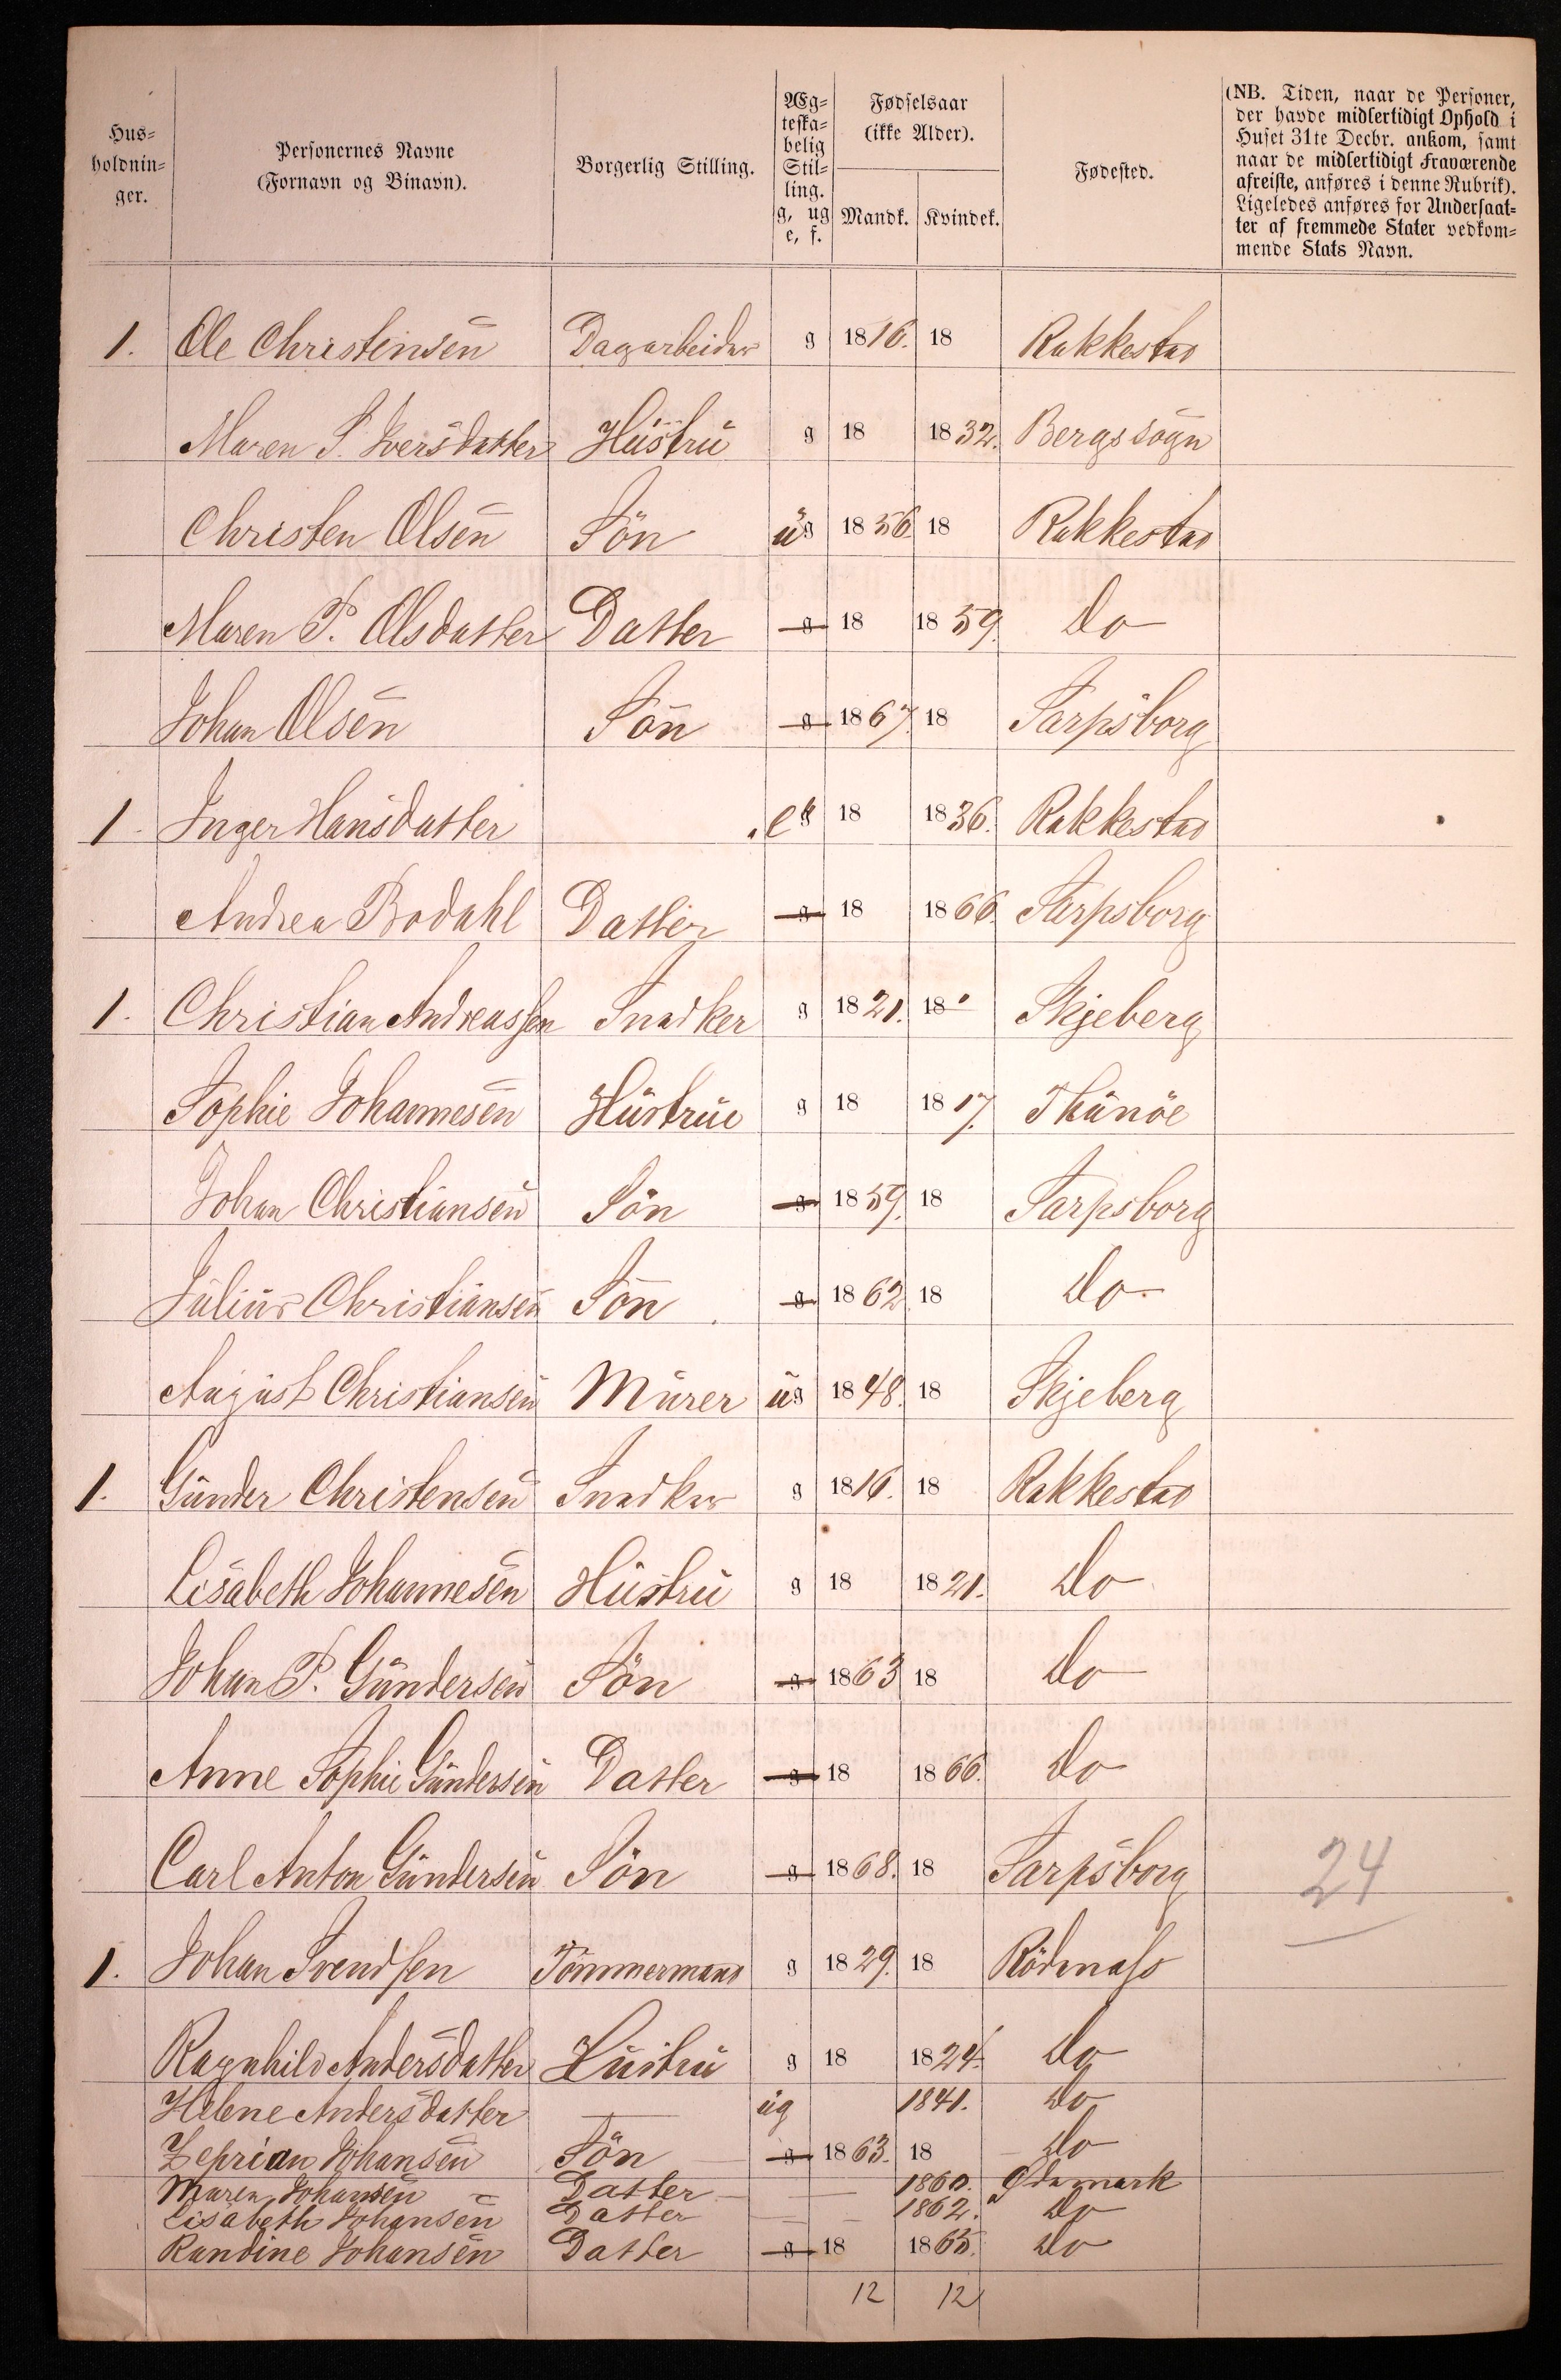 Hus-
holdnin-
ger.
Personernes Navne
(Fornavn og Binavn).
Borgerlig Stilling.
Æg-
teska-
belig
Stil-
ling.
g, ug
e, f.
Fødselsaar
(ikke Alder).
Mandk. Kvindek.
Fødested.
(NB. Tiden, naar de Personer,
der havde midlertidigt Ophold i
Huset 31te Decbr. ankom, samt
naar de midlertidigt Fraværende
afreiste, anføres i denne Rubrik).
Ligeledes anføres for Undersaat-
ter af fremmede Stater vedkom-
mende Stats Navn.
1. Ole Christensen Dagarbeider g 1816. 18 Rakkestad
Maren S. Iversdatter Hustru g 18 1832. Bergs sogn
Christen Olsen Sön ug 1856 18 Rakkestad
Maren P. Olsdatter Datter g 18 1859. Do
Johan Olsen Sön g 1867. 18 Sarpsborg
1. Inger Hansdatter e g 18 1836. Rakkestad
Andrea Bodahl Datter g 18 1866. Sarpsborg
1. Christian Andreassen Snedker g 1821. 18 Skjeberg
Sophie Johannesen Hustrue g 18 1817. Thunöe
Johan Christiansen Sön g 1859. 18 Sarpsborg
Julius Christiansen Sön g 1862 18 Do
August Christiansen Murer ug 1848. 18 Skjeberg
1. Gunder Christensen Snedker g 1816. 18 Rakkestad
Lisabeth Johannesen Hustru g 18 1821. Do
Johan P. Gundersen Sön g 1863 18 Do
Anne Sophie Gundersen Datter g 18 1866. Do
Carl Anton Gundersen Sön g 1868. 18 Sarpsborg
24
1. Johan Svendsen Tömmermand g 1829. 18 Rödenæss
Ragnhild Andersdatter Hustru g 18 1824. Do
Helene Andersdatter — ug 1841. Do
Zeprian Johansen Sön g 1863. 18 Do
Maren Johansen Datter 1860. Ødemark
Lisabeth Johansen Datter 1862. Do
Randine Johansen Datter g 18 1865. Do
12 12